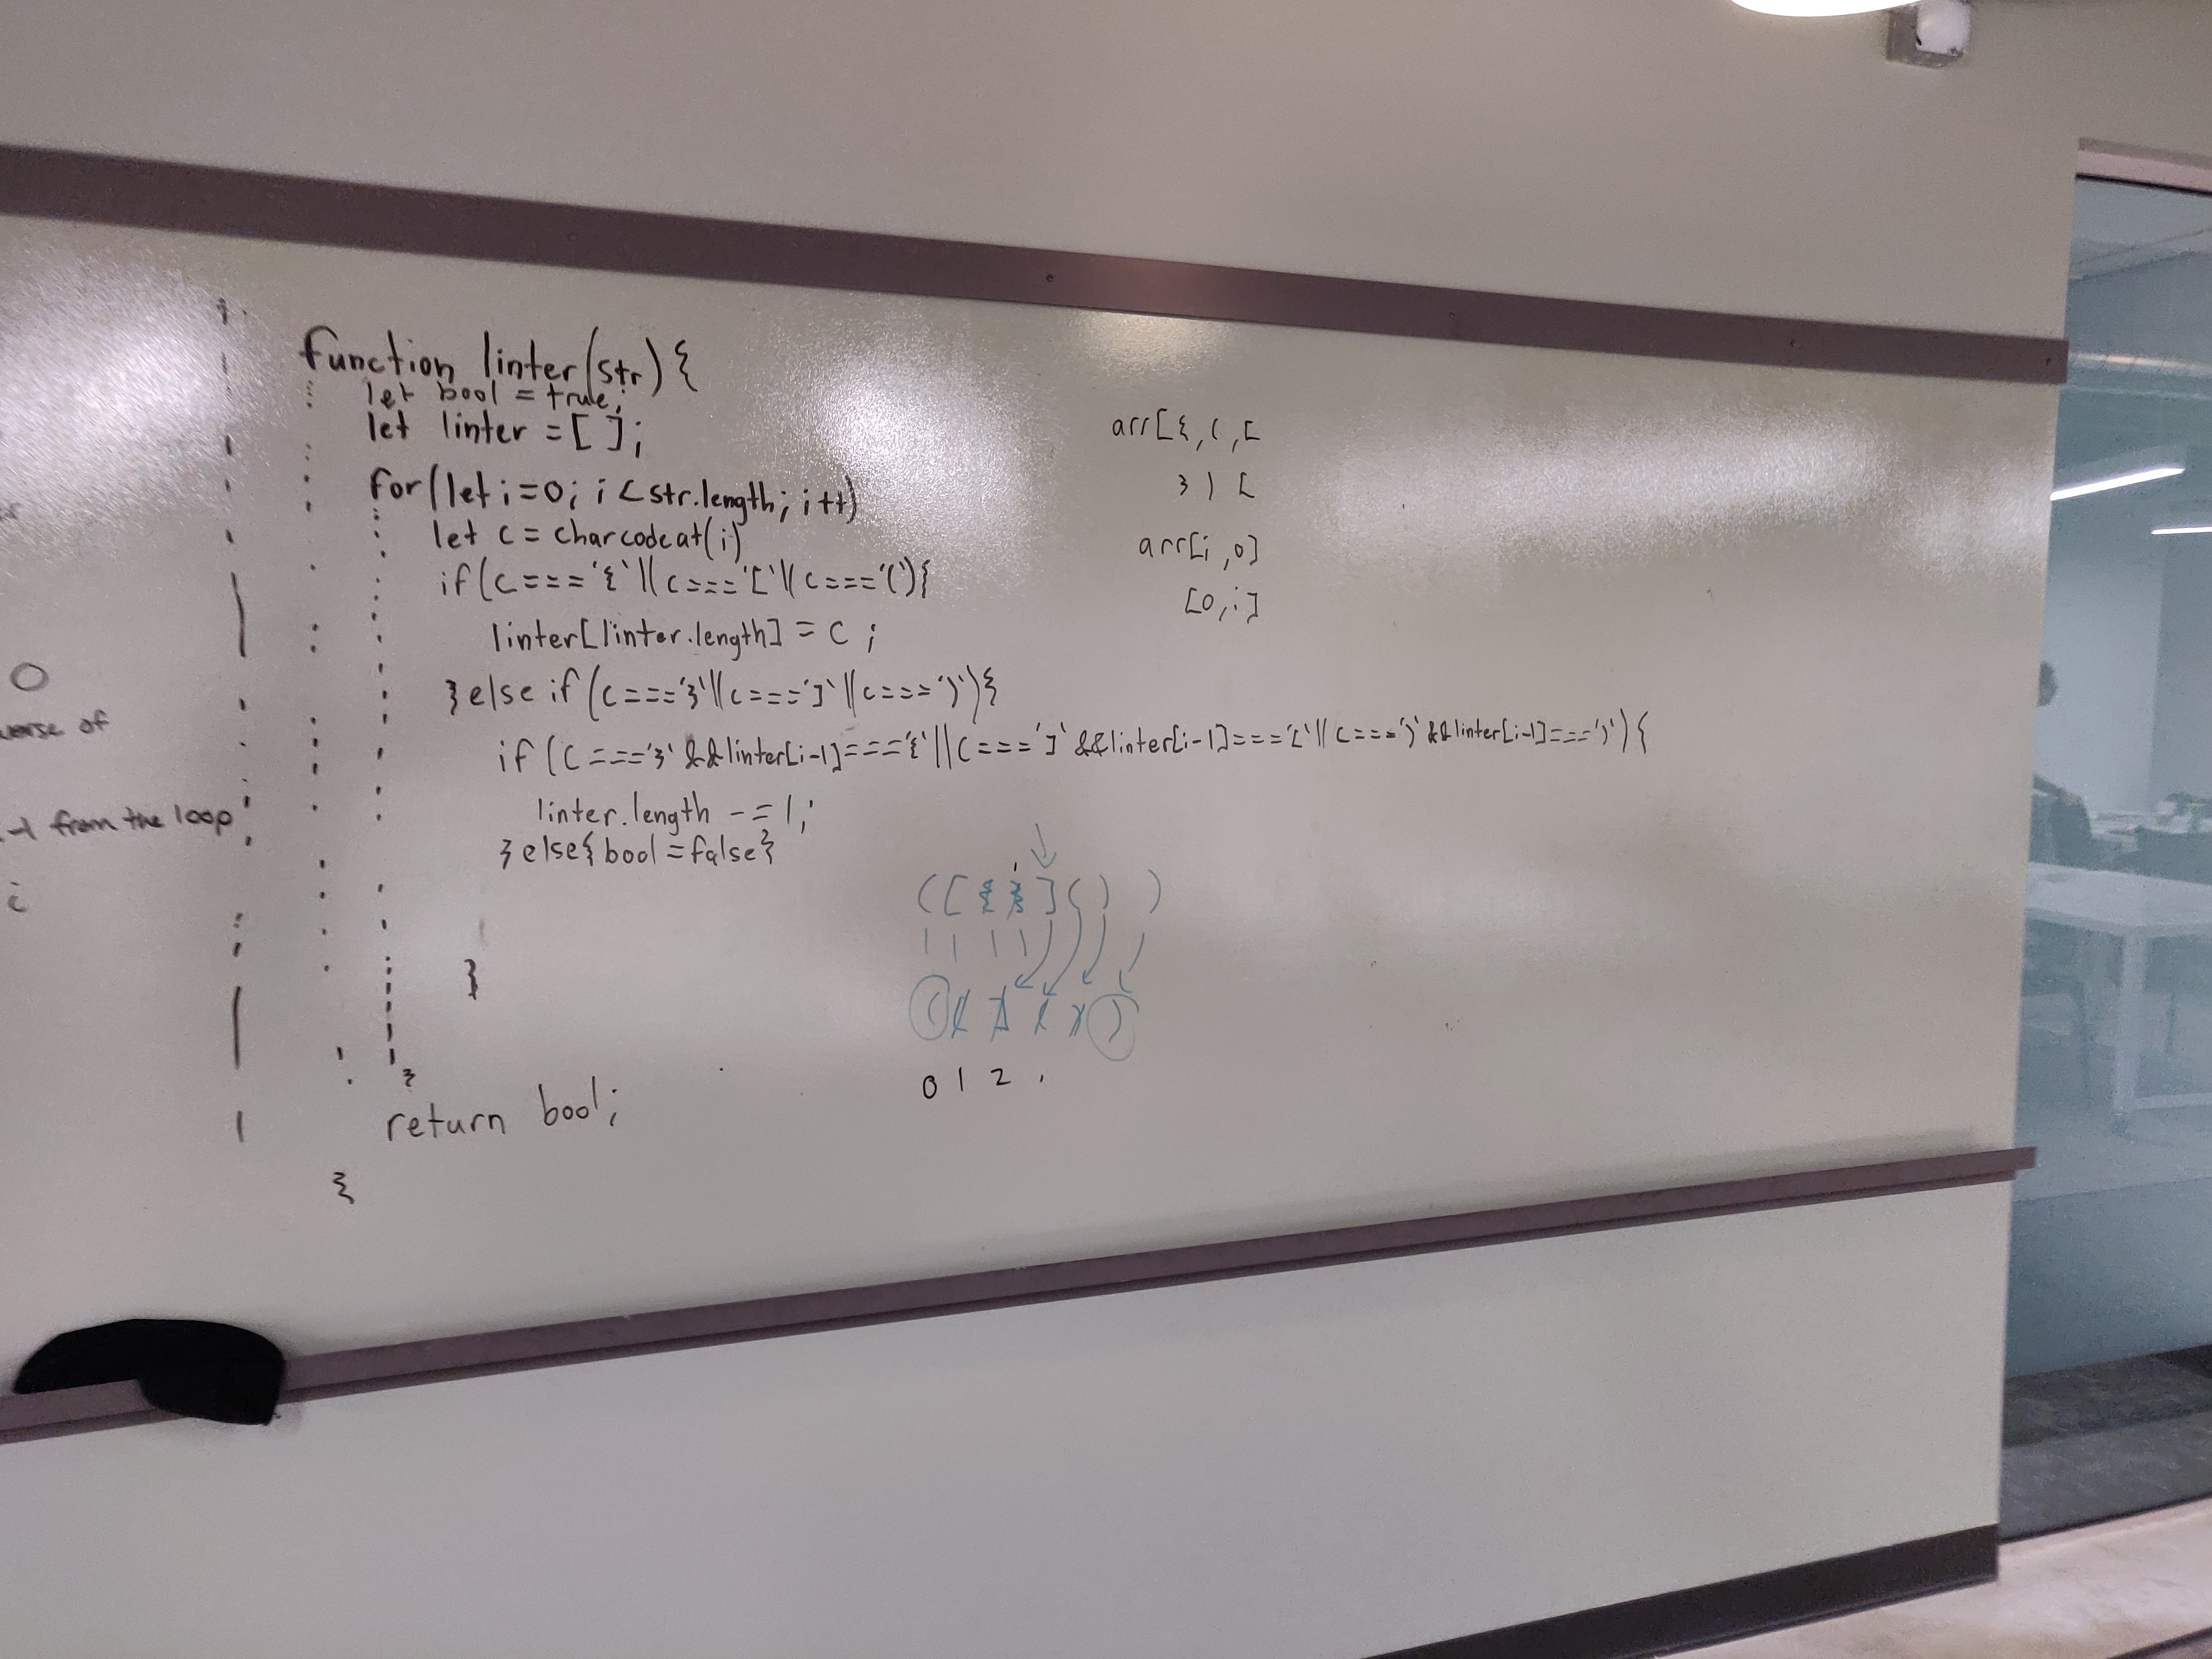 function linter(str){
let bool = true;
let linter = [ ];
for(let i=0; i<str.length; i++)
let c = charcodeat(i)
if(c==='{'||c==='['||c==='('){
linter[linter.length] = c ;
}else if(c==='}'||c===']'||c===')'){
if(c==='}' &&linter[i-1]==='{'||c===']' &&linter[i-1]==='['||c===')'&&linter[i-1]===')'){
linter.length -= 1;
}else{bool=false}
}
}
return bool;
}
arr[{,(,[
} ) [
arr[i,0]
[0,i]
( [ { } ] ( ) )
0 1 2
verse of
-1 from the loop
i